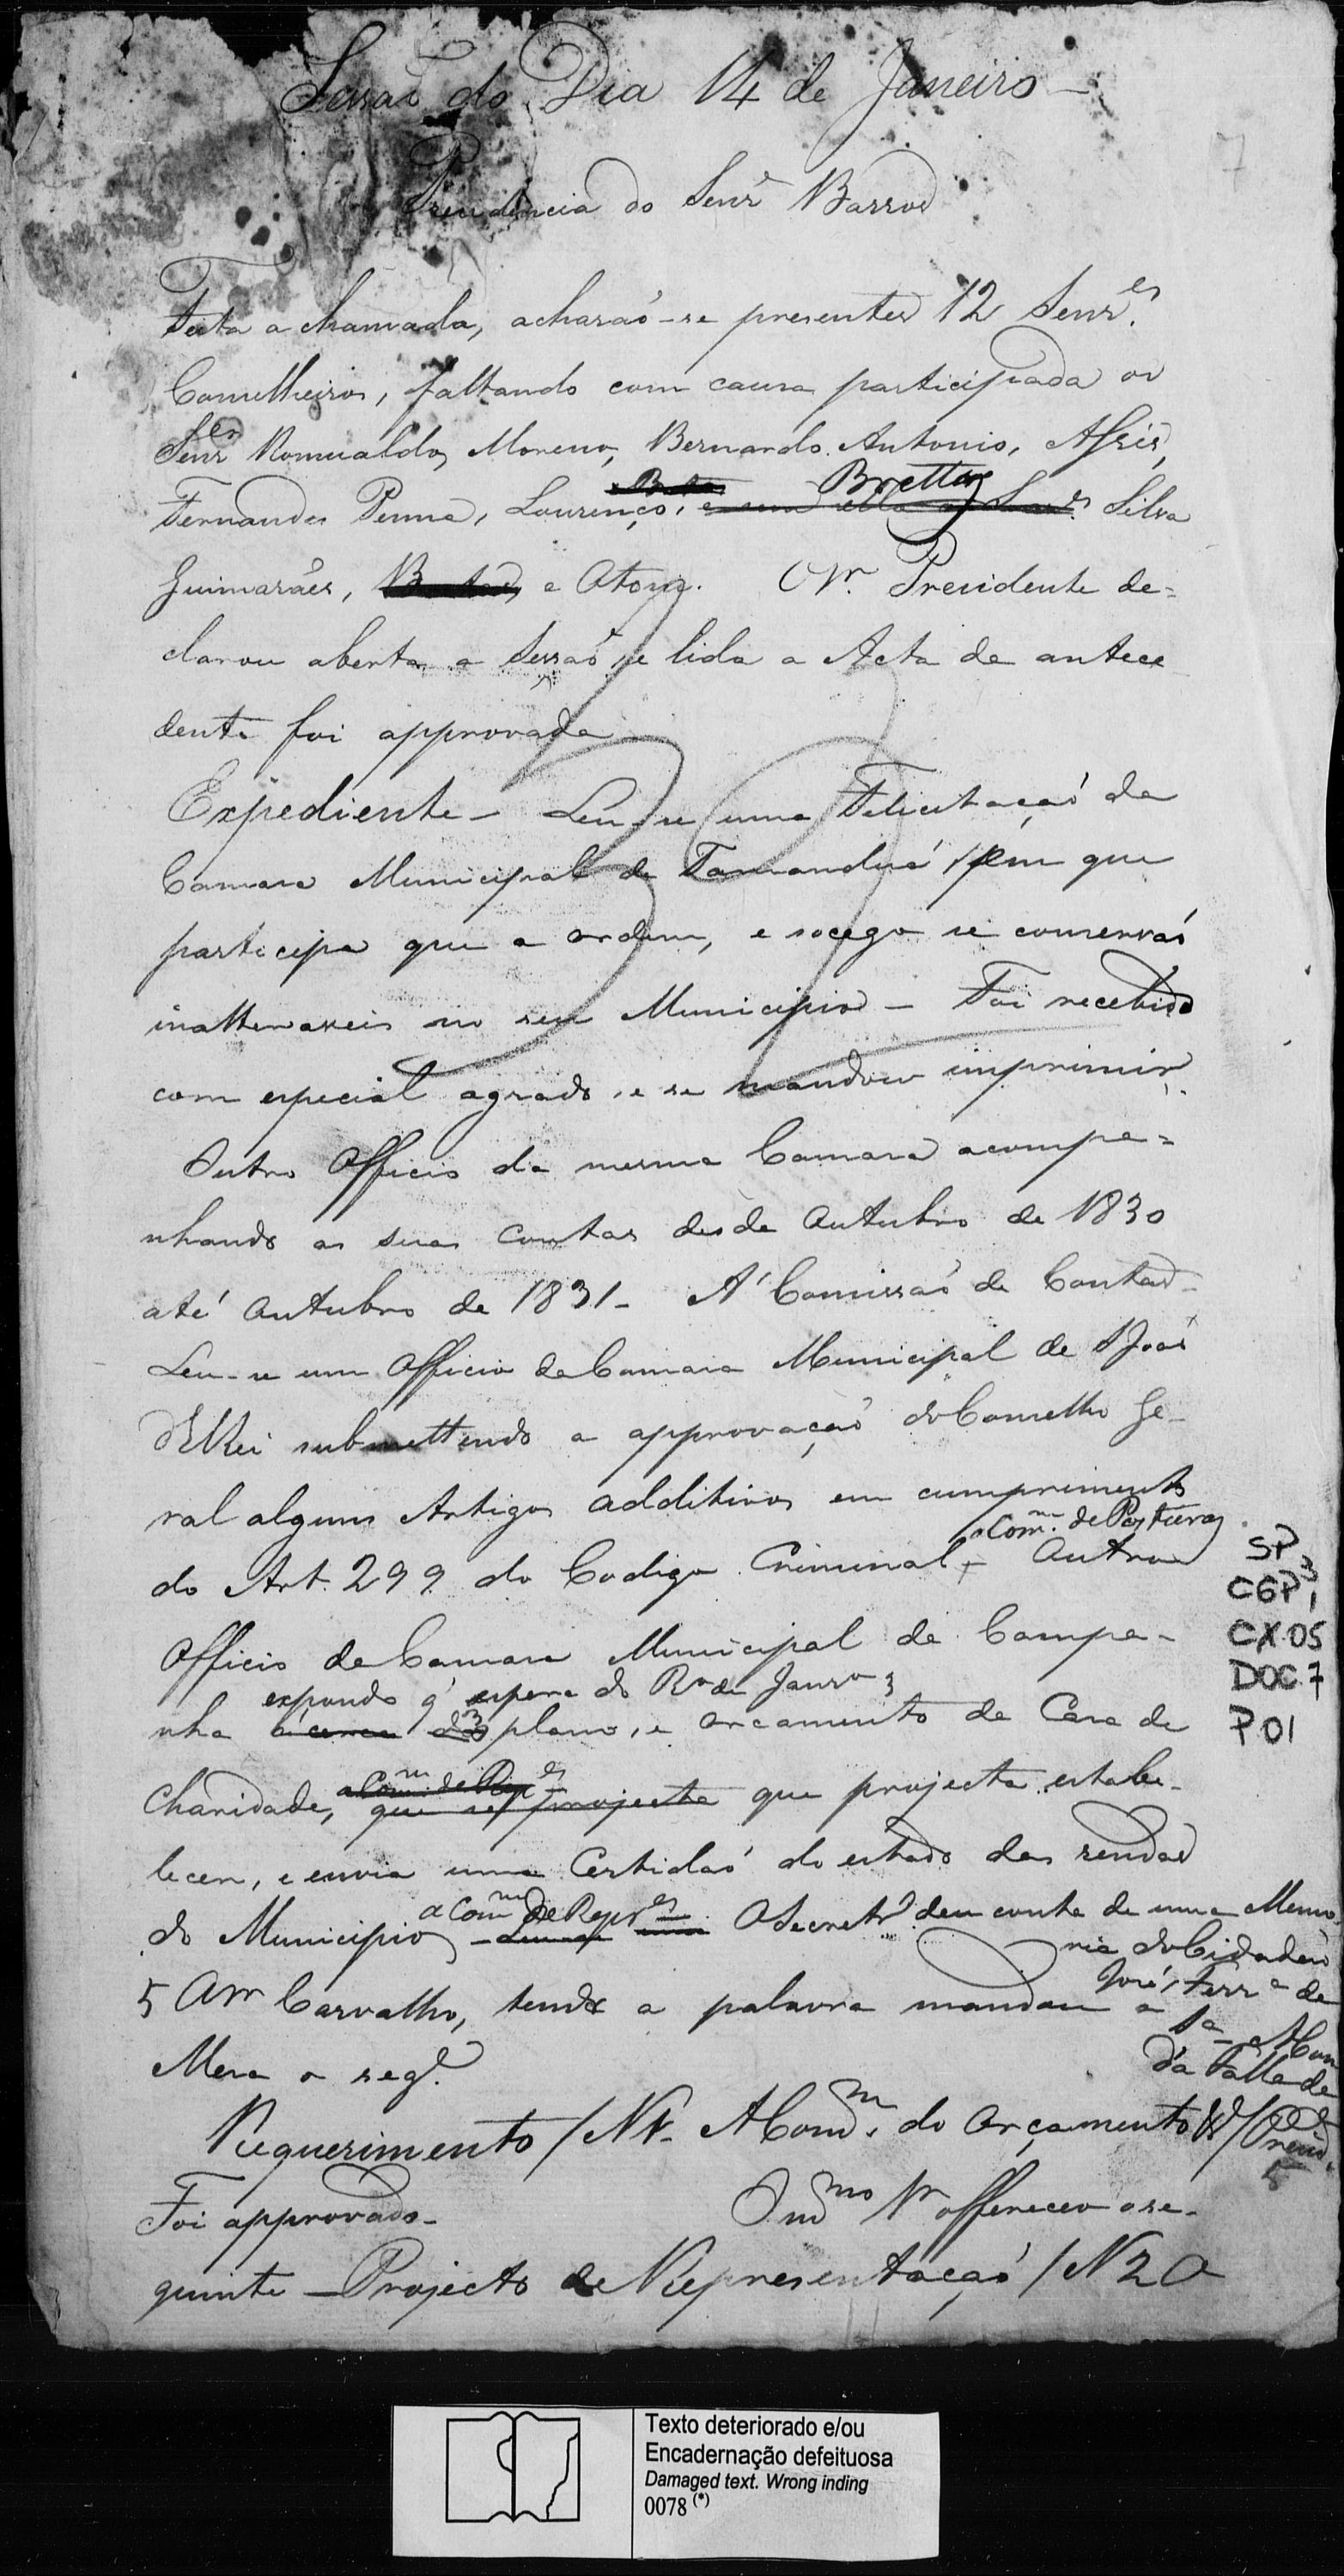 Sessaõ do Dia 14 de Janeiro -
7
Presidencia do Senr Barros
Feita a chamada, acharaõ-se presentes 12 Senr.es
Conselheiros, faltando com causa participada os
Senr.es Romualdo, Moreno, Bernardo Antonio,
Fernandes Penna, Lourenço, Brettas Silva
Guimarães, e Otoni. O Sr. Presidente de=
clarou aberta a Sessaõ, e lida a Acta da antece
dente foi approvada
Expediente - Leu-se uma Felicitaçaõ da
Camara Municipal de Tamanduá em que
participa que a ordem, e socego se conservaõ
inalteraveis no seu Municipio - Foi recebida
com especial agrado, e se mandou imprimir.
Outro Officio da mesma Camara acompa=
nhando as suas Contas desde Outubro de 1830
até Outubro de 1831 - A' Comissaõ de Contas -
Leu-se um Officio da Camara Municipal de S Joaõ
d'ElRei submettendo a approvaçaõ do Conselho Ge-
ral alguns Artigos additivos em cumprimento
a Com.m de Posturas
do Art. 299 do Codigo Criminal - Outro
Officio da Camara Municipal de Campa-
expondo q' espera do R.o de Janr.o
nha acerca do plano, e orcamento da Casa de
a Com.m de Rep.es
Charidade, que se projecta que projecta estabe-
lecer, e envia uma Certidaõ do estado das rendas
a Com.m de Repr.es
do Municipio - Leu-se uma O Secretr.o deu conta de uma Memo
ria do Cidadaõ
José Ferr.a de
5 O Sr Carvalho, tendo a palavra mandou a
Mesa o seg.e
da Falla de
Requerimento / N 1. A Com.m do Orçamento
Foi approvado - O m.mo Sr offereceo o se-
guinte - Projecto de Representaçaõ / N 2 O
SP
CGP 3
1
CX.05
DOC.7
P.01
Texto deteriorado e/ou
Encadernação defeituosa
Damaged text. Wrong inding
0078 (*)